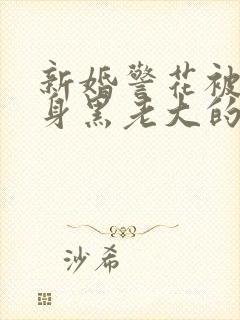 新婚警花被
身黑老大的
沙希